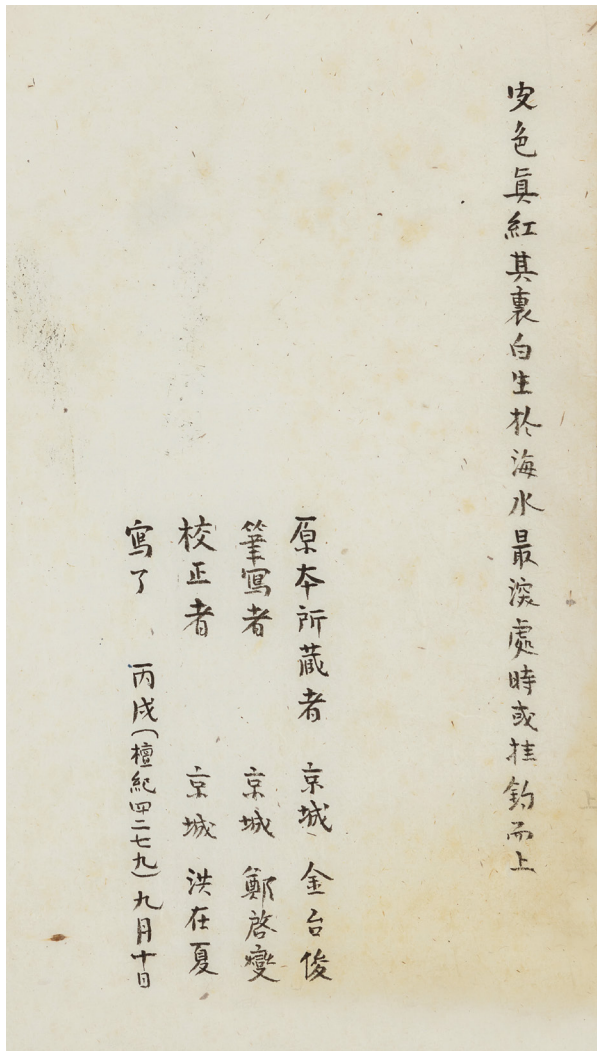 皮色眞紅其裏白生於海水最深處時或挂釣而上
原本所蔵者 京城 金台俊
筆寫者 京城 鄭啓燮
校正者 京城 洪在夏
寫了 丙戌(檀紀四二七九)九月十日